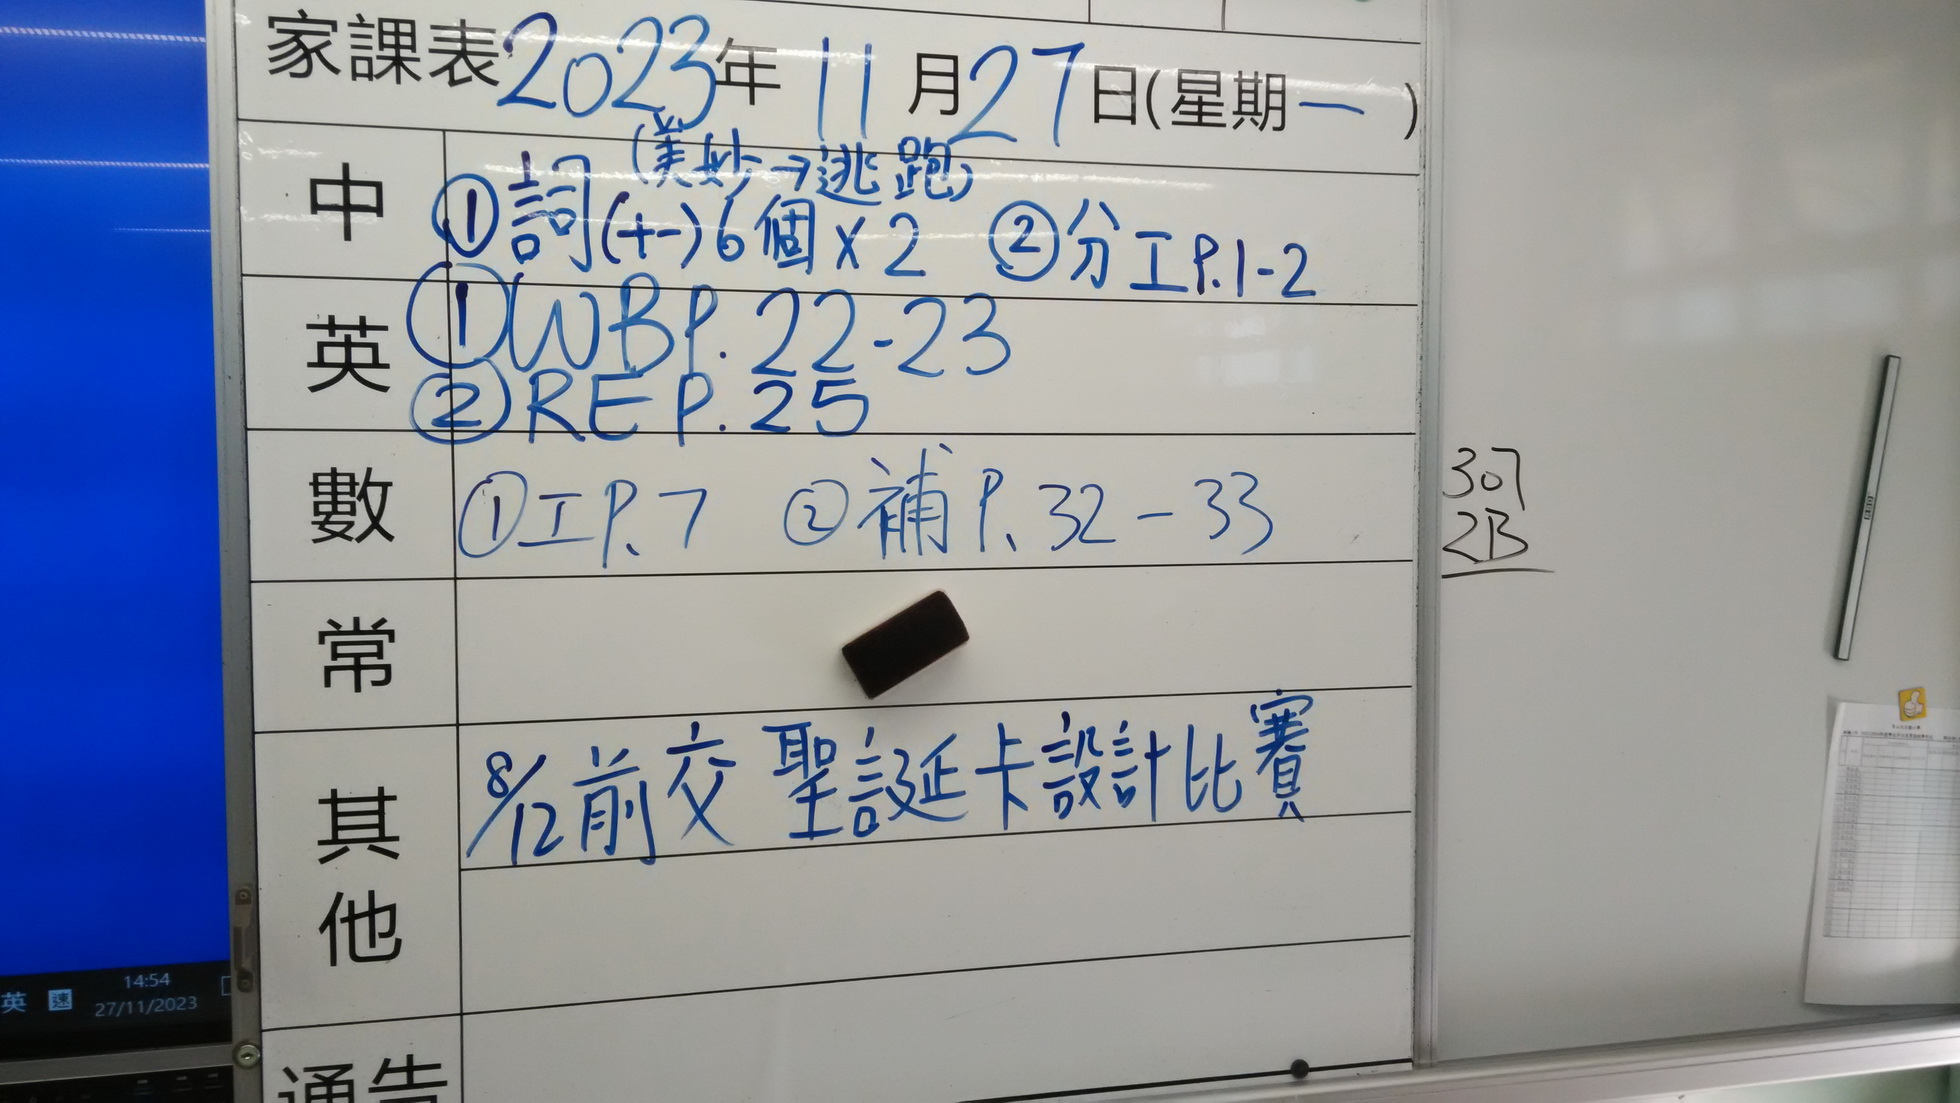 家課表 2023年 11月27日(星期一)
中
(美妙→逃跑)
①詞(十一)6個×2 ②分工P.1-2
英
①WBP.22-23
②REP.25
數
①工P.7 ②補P.32-33
常
其他
8/12前交 聖誕卡設計比賽
通告
307
2B
英 速
14:54
27/11/2023